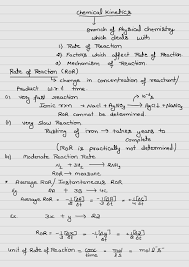 Chemical Kinetics
Branch of Physical chemistry
which deals with
1) Rate of Reaction
2) Factors which affect Rate of Reaction
3) Mechanism of Reaction
Rate of Reaction (RoR)
change in concentration of reactant/
Product w.r.t time.
(i) very fast reaction
Ionic rxn → NaCl + AgNO3 → AgCl + NaNO3
ROR cannot be determined
(ii) very slow Reaction
Rusting of iron → takes years to
complete
(ROR is practically not determined)
Moderate Reaction Rate
N2 + 3H2 → 2NH3
ROR → measure
* Average ROR / Instantaneous ROR
Average ROR =
3x + y → 2z
ROR =
Unit of Rate of Reaction = conc/time = mol